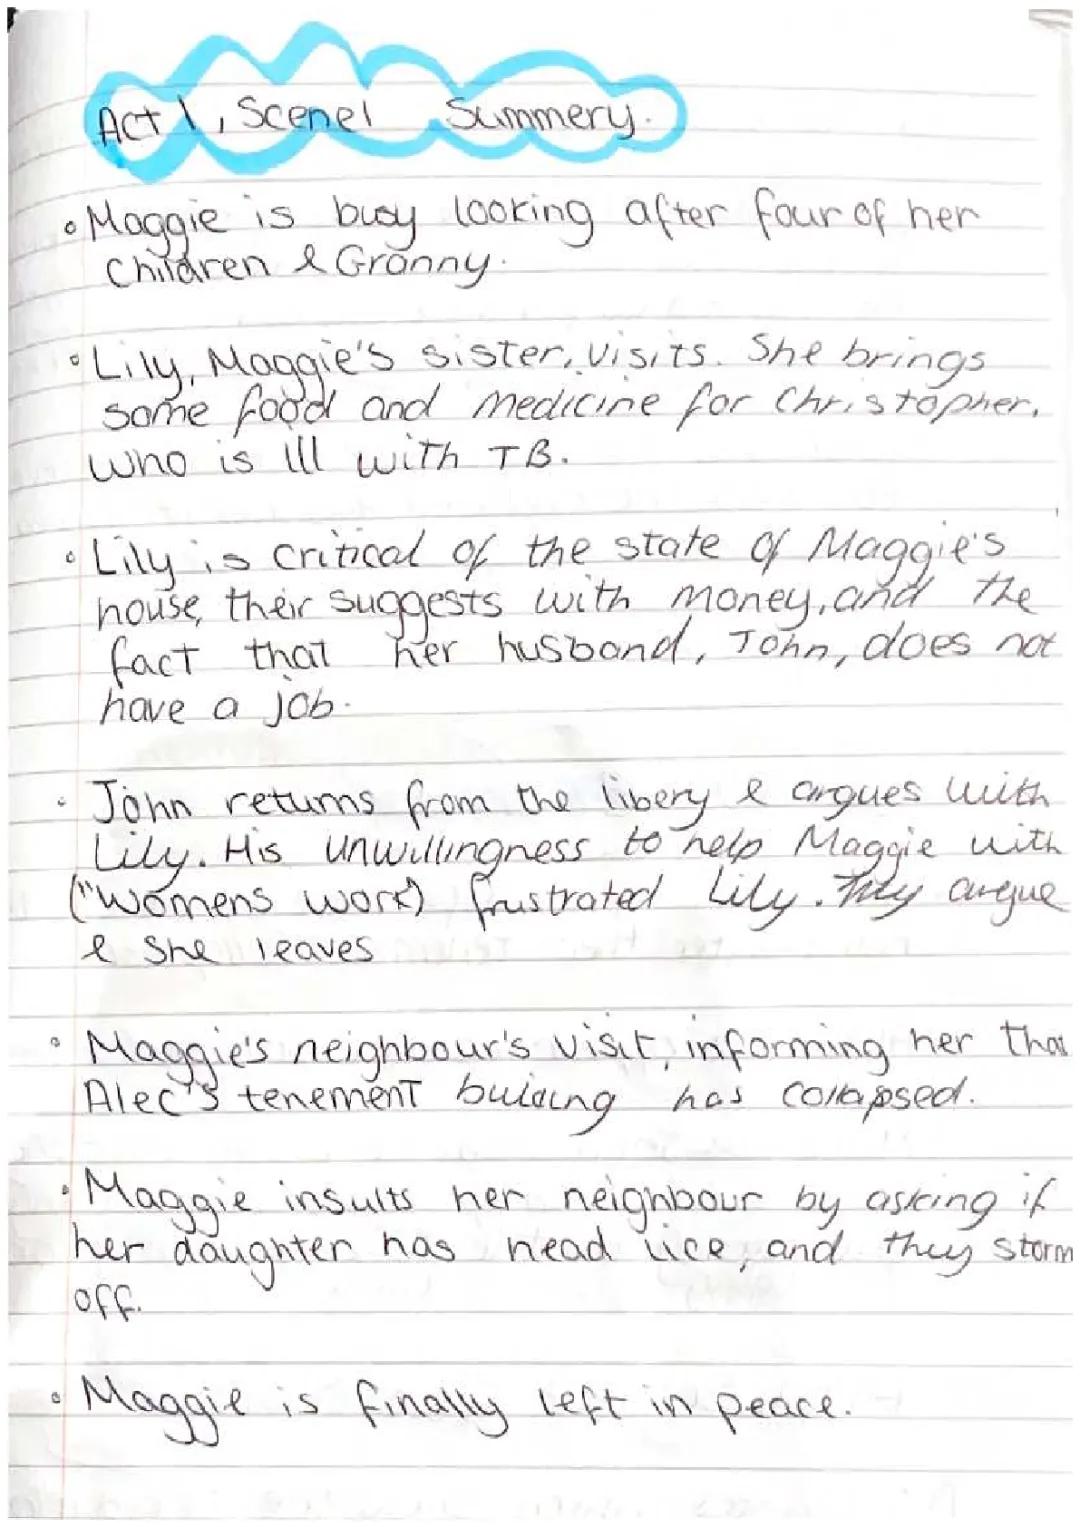 Act 1, Scene 1 Summery.
• Maggie is busy looking after four of her
Children & Granny.
• Lily, Maggie's sister, visits. She brings
some food and medicine for Christopher,
who is ill with TB.
• Lily is critical of the state of Maggie's
house, their suggests with money, and the
fact that her husband, John, does not
have a job.
• John returns from the libery & argues with
Lily. His unwillingness to help Maggie with
("womens work) frustrated Lily. They argue
& she leaves
• Maggie's neighbour's visit, informing her that
Alec's tenement building has collapsed.
• Maggie insults her neighbour by asking if
her daughter has head lice, and they storm
off.
• Maggie is finally left in peace.